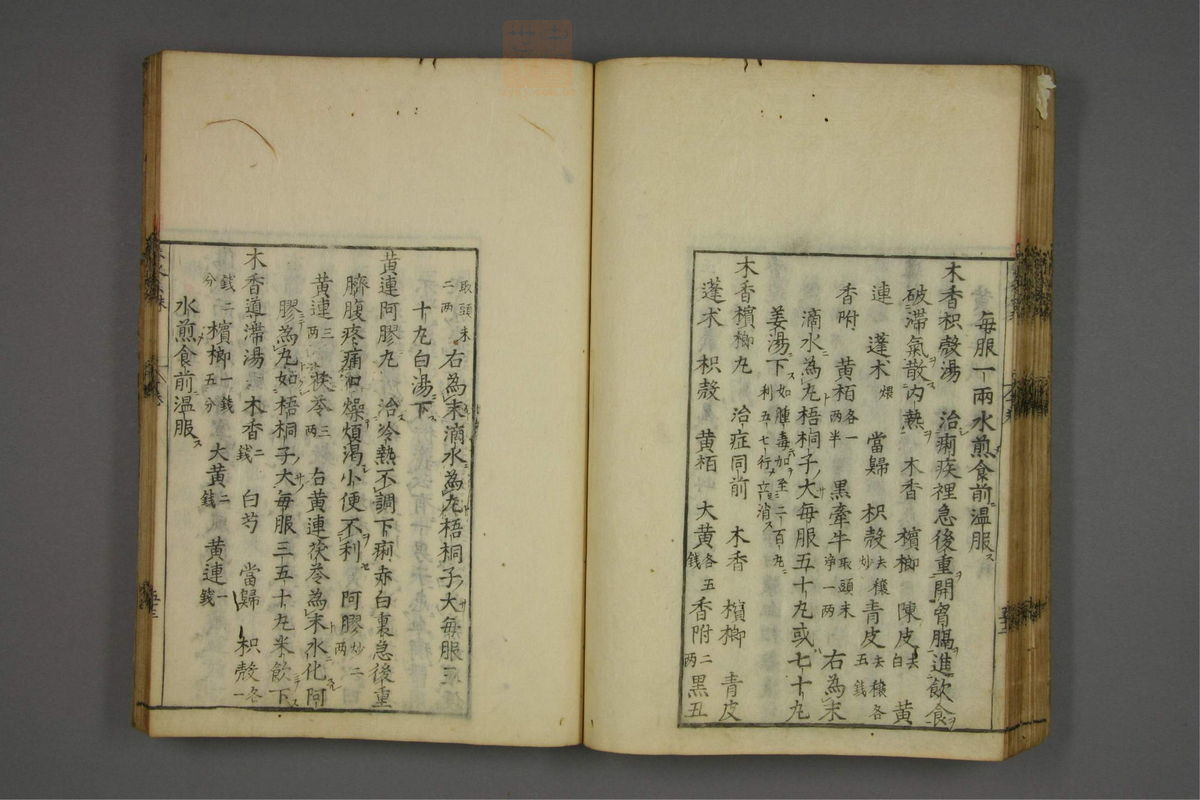 每服一兩水煎食前溫服
木香枳殼湯 治痢疾裡急後重開胷膈進飲食
破滯氣散內熱 木香 檳榔 陳皮去白 黃
連 蓬朮煨 當歸 枳殼去穰炒 青皮去穰各五錢
香附 黃栢各一兩半 黑牽牛取頭末淨一兩 右為末
滴水為丸梧桐子大每服五十丸或七十丸
姜湯下如腫毒加至二百丸利五七行立消
木香檳榔丸 治症同前 木香 檳榔 青皮
蓬朮 枳殼 黃栢 大黃各五錢 香附二兩 黑丑
取頭末二兩 右為末滴水為丸梧桐子大每服
十丸白湯下
黃連阿膠丸 治冷熱不調下痢赤白裏急後重
臍腹疼痛口燥煩渴小便不利 阿膠炒二兩
黃連三兩 茯苓三兩 右黃連茯苓為末水化阿
膠為丸如梧桐子大每服三五十丸米飲下
木香導滯湯 木香二錢 白芍 當歸 枳殼各一
錢二分 檳榔一錢五分 大黃二錢 黃連一錢
水煎食前溫服